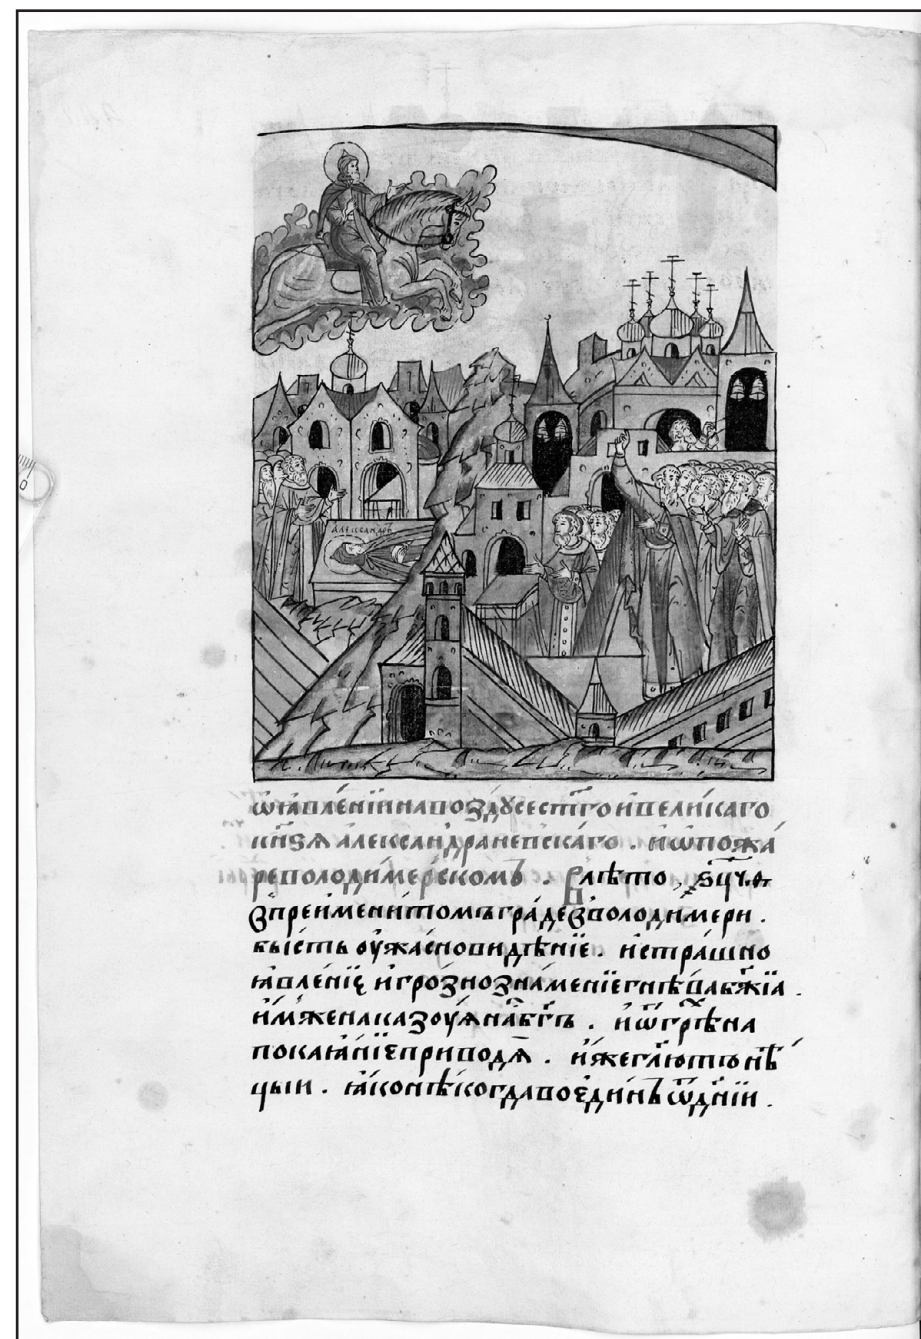 АЛЕѮАНДРЪ
ѡꙗвле́нїинавоздꙋсест҃гоивели́каго
кн҃ѕѧ алеѯа́ндраневскаго . иѡпожа́
револоди́мерскомъ . влѣто ҂ѕцч҃ѳ
впреимени́томъгра́девволоди́мери .
бы́сть оужа́сновидѣ́нїе . истра́шно
ꙗвле́нїе, игро́знозна́менїегнѣ́вабж҃їа .
и́мженаказоуꙗна́събг҃ъ . иѿгрѣ́хна
покаꙗ́нїеприводѧ̀ . и́жегл҃ютьнѣ́
цыи . ꙗ́конѣ́когдавоеди́нъѿдн҃їи .